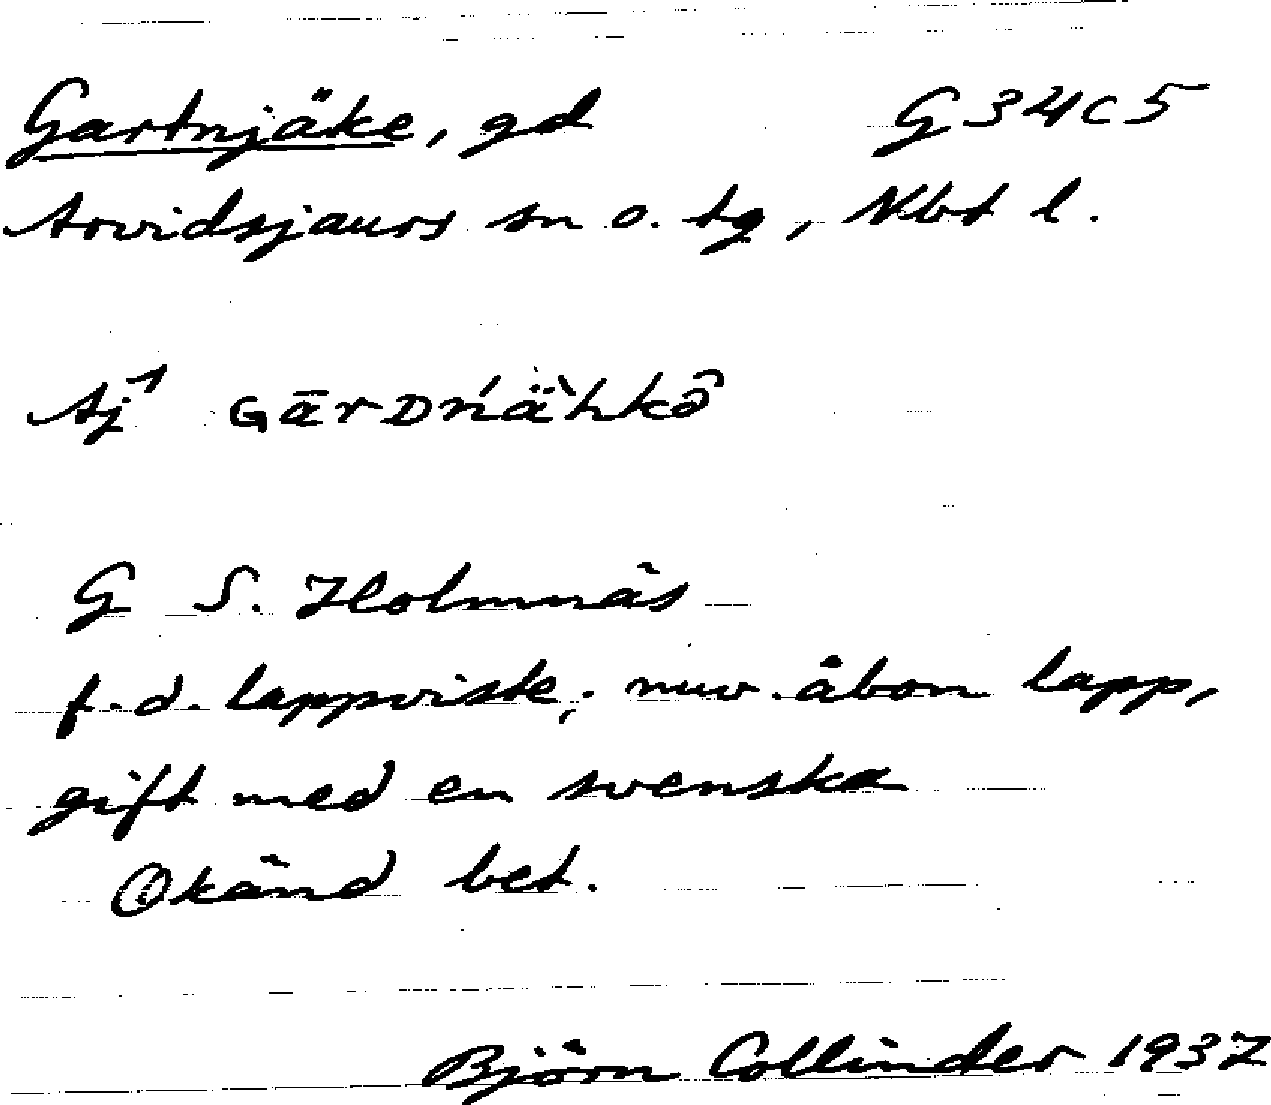 Gartnjäke, gd G34c5
Arvidsjaurs sn o. tg, Nbt l.
Aj¹ GārDńä̀hkô
G S. Holmnäs
f.d. lappviste; nuv. åbon lapp,
gift med en svenska
Okänd bet.
Björn Collinder 1937